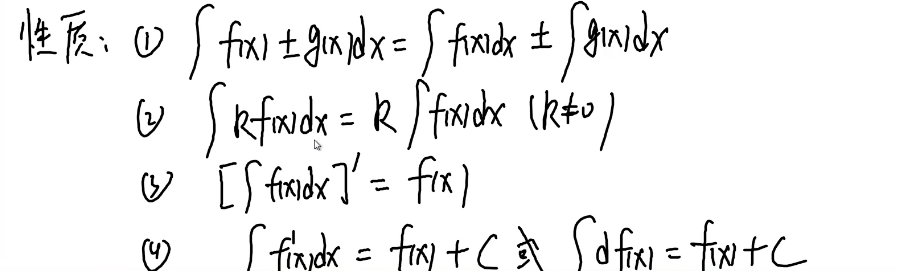 性质: ① ∫ f(x) ± g(x)dx = ∫ f(x)dx ± ∫ g(x)dx
② ∫ kf(x)dx = k ∫ f(x)dx (k≠0)
③ [∫ f(x)dx]' = f(x)
④ ∫ f'(x)dx = f(x) + C 或 ∫ df(x) = f(x) + C